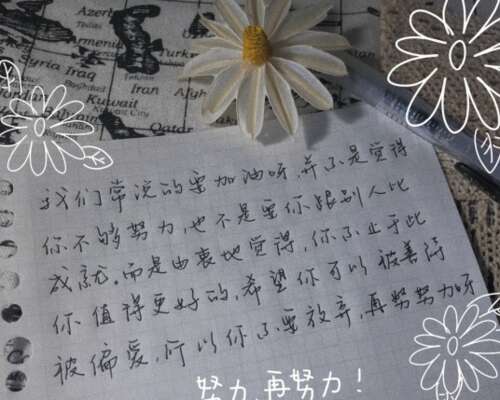 Azerb
Armenia
Turk
Syria
Iraq
Tehran
Baghdad
Iran
Afgh
Kuwait
East
Qatar
我们常说的要加油呀,并不是觉得
你不够努力,也不是要你跟别人比
成就。而是由衷地觉得,你不止于此
你值得更好的,希望你可以被善待
被偏爱,所以你不要放弃,再努努力呀
努力,再努力!